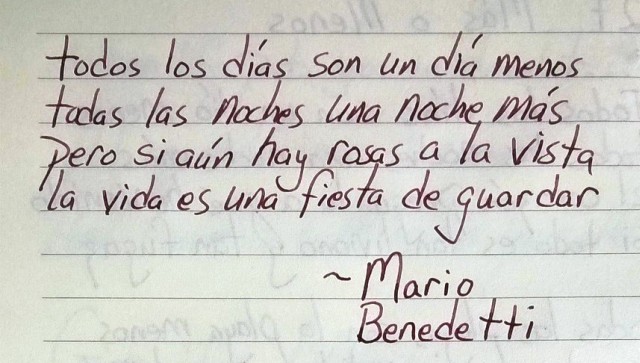 todos los días son un diá menos
todas las noches una noche más
pero si aún hay rosas a la vista
la vida es una fiesta de guardar
~Mario
Benedetti